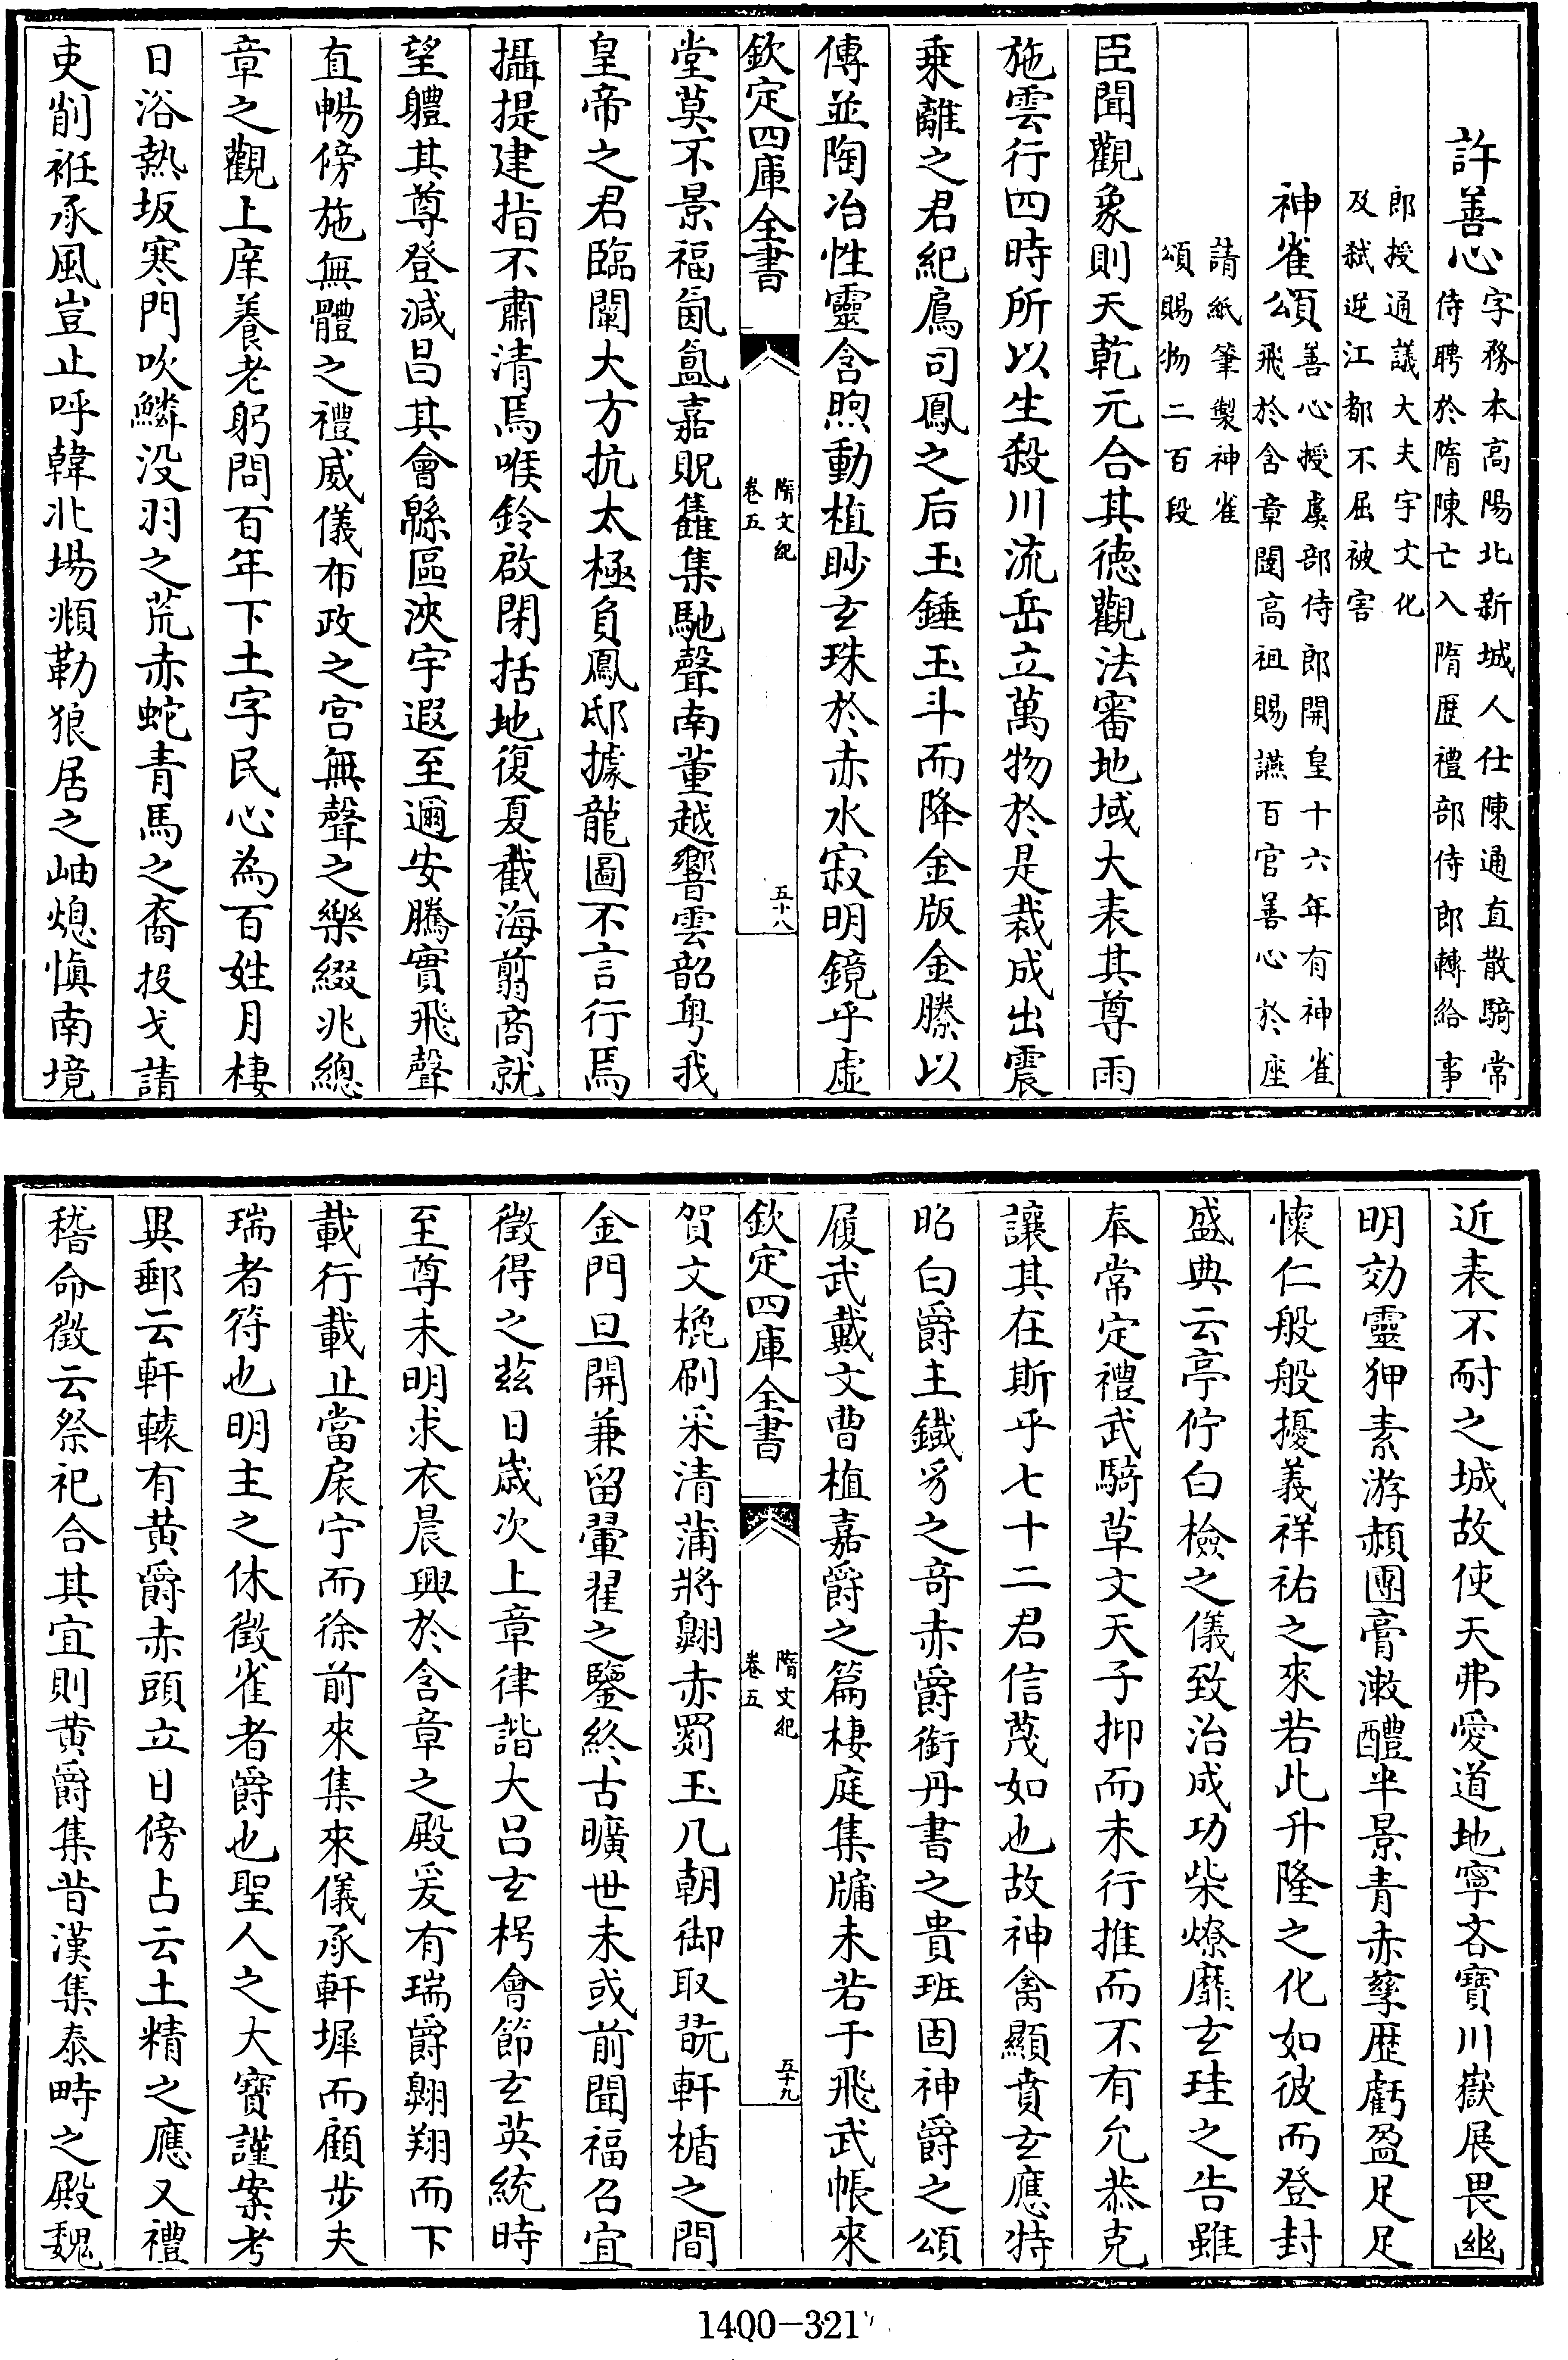 許善心字務本高陽北新城人仕陳通直散騎常
侍聘於隋陳亡入隋歷禮部侍郎轉給事
郎授通議大夫宇文化
及弑逆江都不屈被害
神雀頌善心授虞部侍郎開皇十六年有神雀
飛於含章闥高祖賜讌百官善心於座
請紙筆製神雀
頌賜物二百段
臣聞觀象則天乾元合其德觀法審地域大表其尊雨
施雲行四時所以生殺川流岳立萬物於是裁成出震
乘離之君紀鳥司鳳之后玉錘玉斗而降金版金縢以
傳並陶冶性靈含煦動植眇玄珠於赤水寂明鏡乎虛
欽定四庫全書
隋文紀
卷五
五十八
堂莫不景福氤氳嘉貺雝集馳聲南董越響雲韶粤我
皇帝之君臨闡大方抗太極負鳳邸據龍圖不言行焉
攝提建指不肅清焉喉鈴啟閉括地復夏截海翦商就
望軆其尊登減昌其會緜區浹宇遐至邇安騰實飛聲
直暢傍施無體之禮威儀布政之宫無聲之樂綴兆總
章之觀上庠養老躬問百年下土字民心為百姓月棲
日浴熱坂寒門吹鱗没羽之荒赤蛇青馬之裔投戈請
吏削衽承風豈止呼韓北塲頫勒狼居之岫熄慎南境
近表不耐之城故使天弗愛道地寧吝寶川嶽展畏幽
明効靈狎素游頳團膏漱醴半景青赤孳歷虧盈足足
懷仁般般擾義祥祐之來若此升隆之化如彼而登封
盛典云亭佇白檢之儀致治成功柴燎靡玄珪之告雖
奉常定禮武騎草文天子抑而未行推而不有允恭克
讓其在斯乎七十二君信蔑如也故神禽顯賁玄應特
昭白爵主鐵豸之奇赤爵銜丹書之貴班固神爵之頌
履武戴文曹植嘉爵之篇棲庭集牖未若于飛武帳來
欽定四庫全書
隋文紀
卷五
五十九
賀文㮰刷采清蒲將翺赤罽玉几朝御取翫軒楯之間
金門旦開兼留翬翟之鑒終古曠世未或前聞福召宜
徵得之茲日嵗次上章律諧大吕玄枵會節玄英統時
至尊未明求衣晨興於含章之殿爰有瑞爵翺翔而下
載行載止當扆宁而徐前來集來儀承軒墀而顧步夫
瑞者符也明主之休徵雀者爵也聖人之大寶謹案考
異郵云軒轅有黄爵赤頭立日傍占云土精之應又禮
稽命徵云祭祀合其宜則黄爵集昔漢集泰畤之殿魏
1400-321